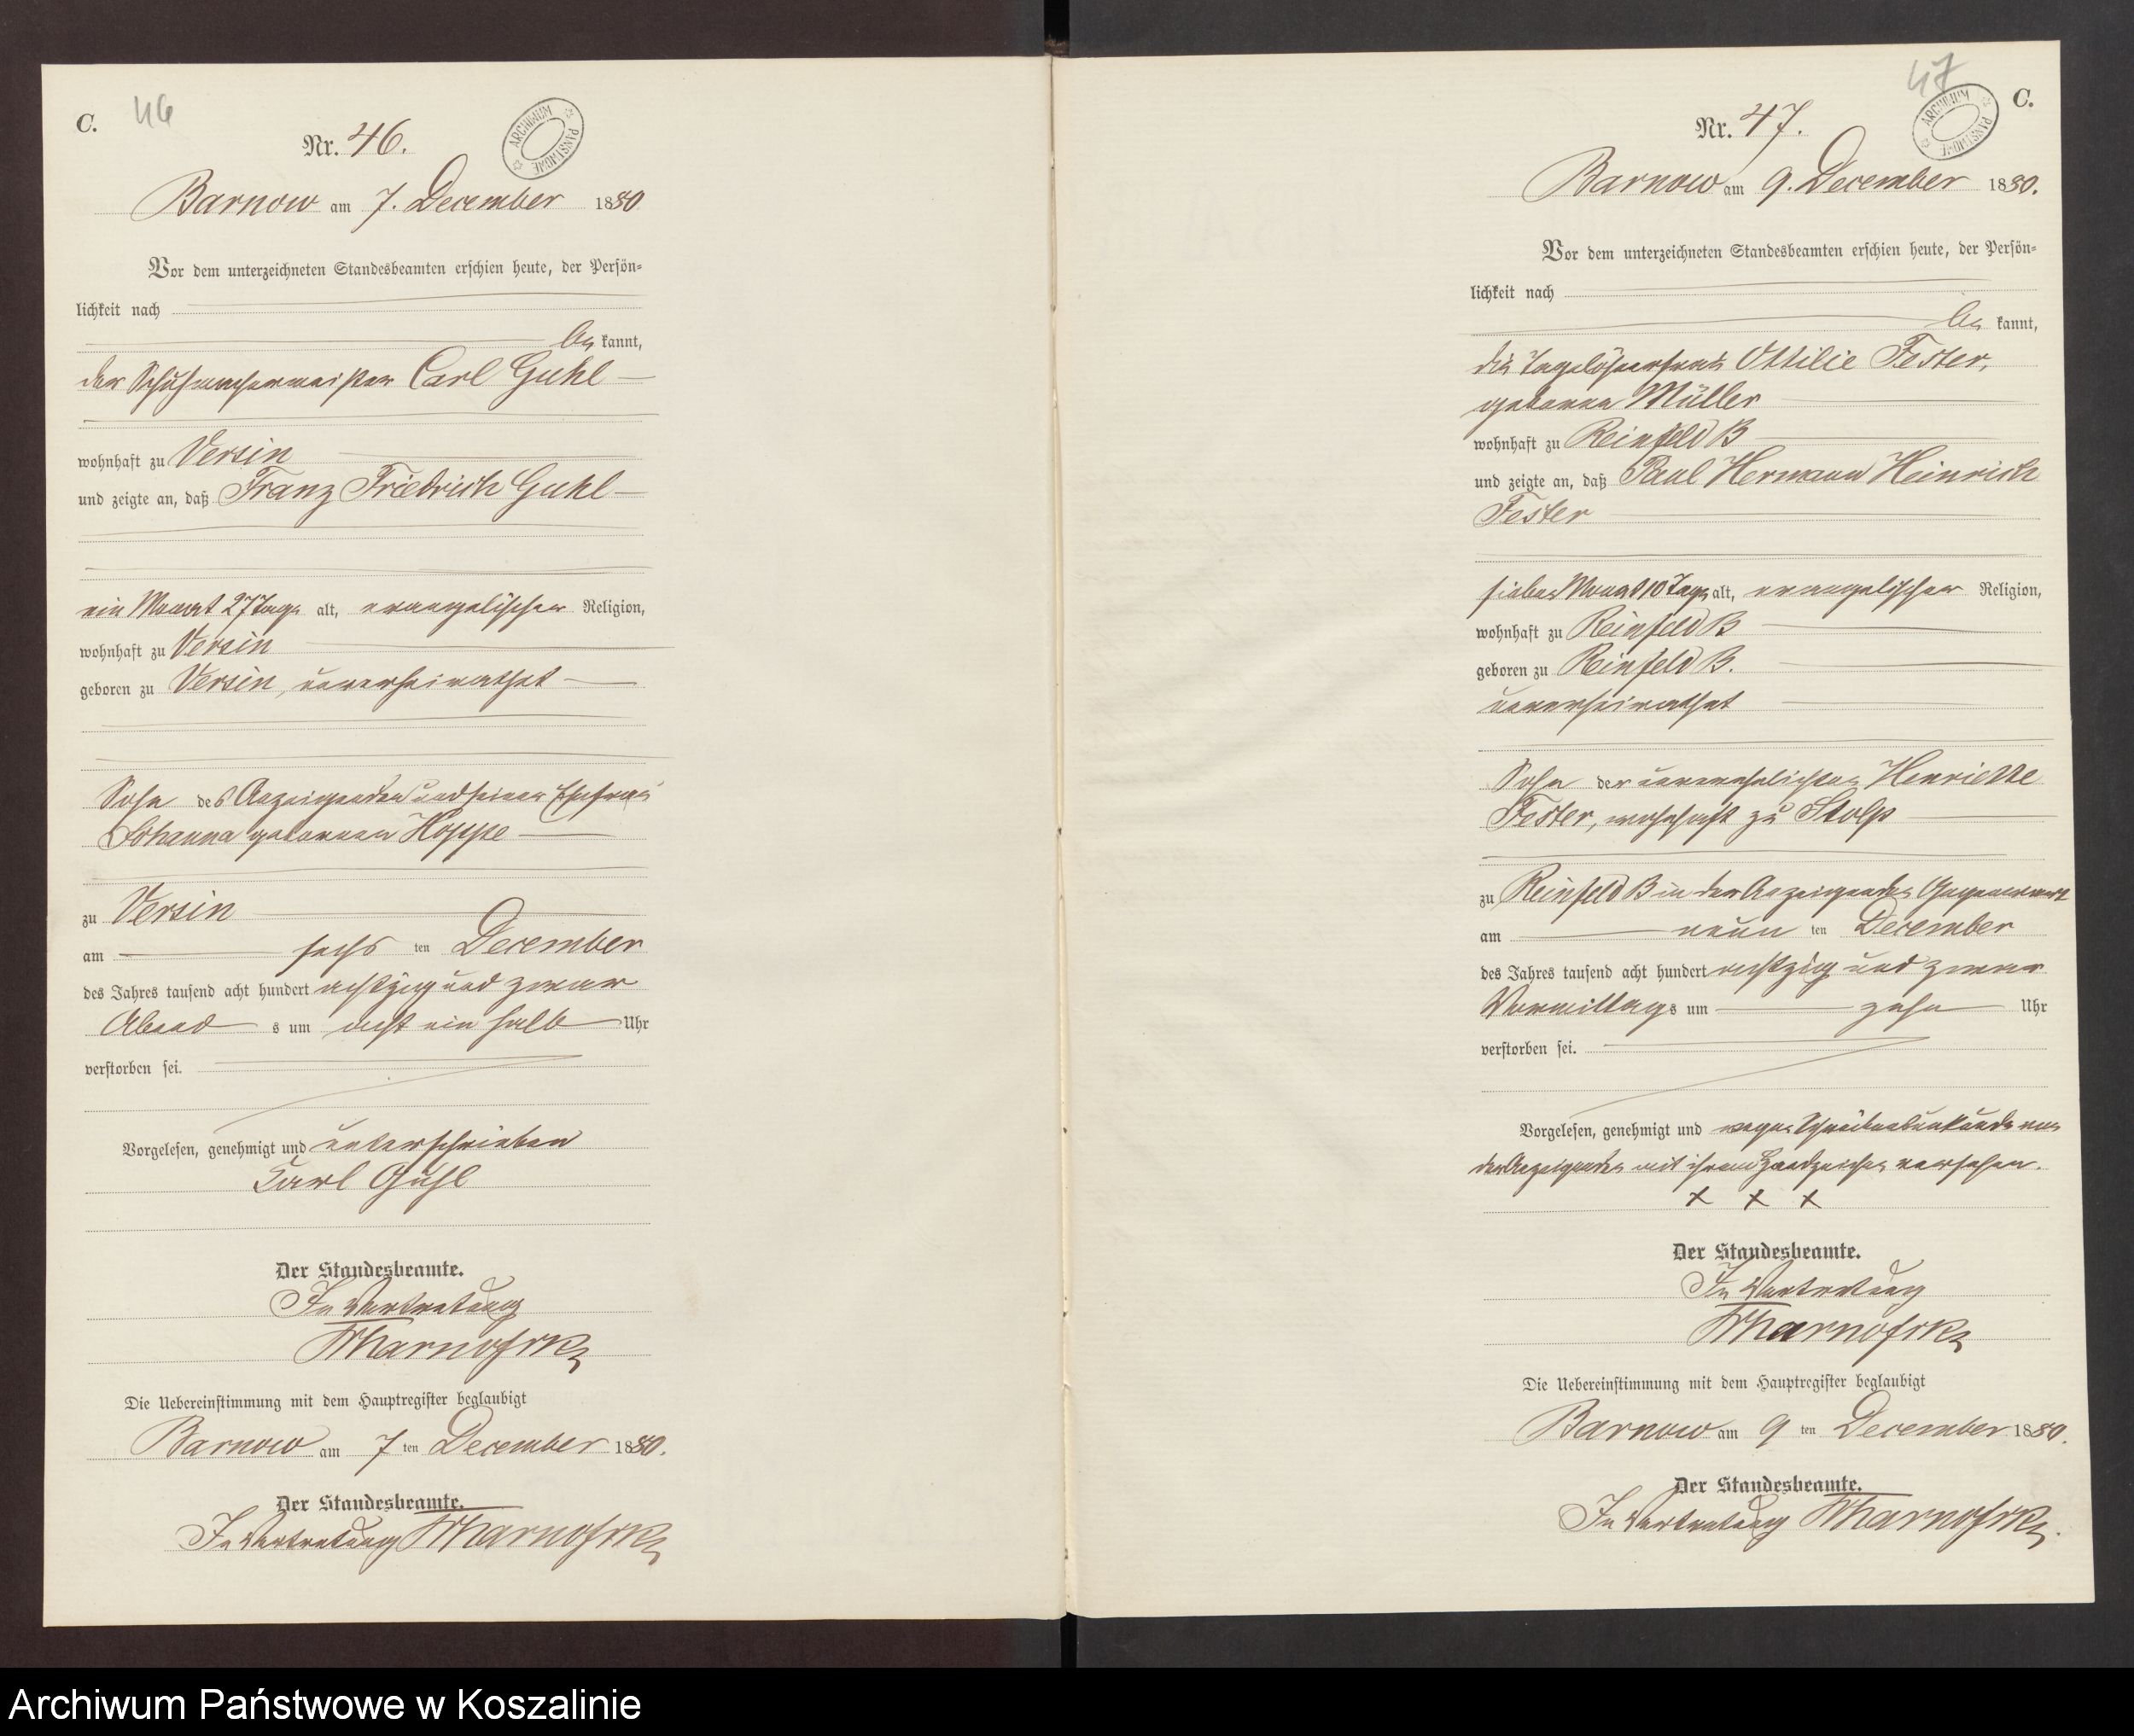 C. 46
Nr. 46.
ARCHIWUM PAŃSTWOWE
Barnow am 7. December 1880
Vor dem unterzeichneten Standesbeamten erschien heute, der Persön-
lichkeit nach
be kannt,
der Schuhmachermeister Carl Guhl
wohnhaft zu Versin
und zeigte an, daß Franz Friedrich Guhl
ein Monat 27 Tage alt, evangelischer Religion,
wohnhaft zu Versin
geboren zu Versin, unverheirathet
Sohn des Anzeigenden und seiner Ehefrau
Johanna geborenen Hoppe
zu Versin
am sechs ten December
des Jahres tausend acht hundert achtzig und zwar
Abend s um acht ein halb Uhr
verstorben sei.
Vorgelesen, genehmigt und unterschrieben
Carl Guhl
Der Standesbeamte.
In Vertretung
Die Uebereinstimmung mit dem Hauptregister beglaubigt
Barnow am 7 ten December 1880.
Der Standesbeamte.
In Vertretung
47 C.
Nr. 47.
ARCHIWUM PAŃSTWOWE
Barnow am 9. December 1880.
Vor dem unterzeichneten Standesbeamten erschien heute, der Persön-
lichkeit nach
be kannt,
die Tagelöhnerfrau Ottilie Fester,
geborene Müller
wohnhaft zu Reinfeld B
und zeigte an, daß Paul Hermann Heinrich
Fester
sieben Monat 10 Tage alt, evangelischer Religion,
wohnhaft zu Reinfeld B
geboren zu Reinfeld B.
unverheirathet
Sohn der unverehelichten Henriette
Fester, wohnhaft zu Stolp
zu Reinfeld B in der Anzeigenden Gegenwart
am neun ten December
des Jahres tausend acht hundert achtzig und zwar
Vormittags um zehn Uhr
verstorben sei.
Vorgelesen, genehmigt und wegen Schreibensunkunde von
der Anzeigenden mit ihrem Handzeichen versehen.
x x x
Der Standesbeamte.
In Vertretung
Die Uebereinstimmung mit dem Hauptregister beglaubigt
Barnow am 9 ten December 1880.
Der Standesbeamte.
In Vertretung
Archiwum Państwowe w Koszalinie